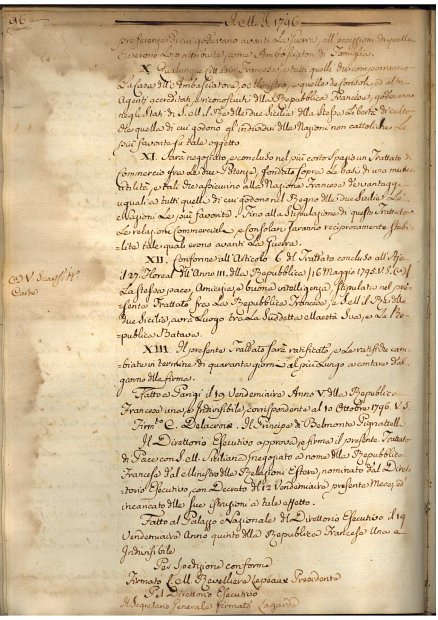 96
Nell' A. 1796
preferenze di cui godevano avanti la Guerra, all' eccezioni di quelle
che erano Loro attribuite come Ambasciatori di Famiglia.
X. Qualunque Cittadino Francese, e tutti quelli che comporranno
la Casa dell' Ambasciatore, o Ministro, e quelle de Consoli, o altri
Agenti accreditati, e riconosciuti della Repubblica Francese, goderanno
negli Stati di S. M. il Re delle due Sicilie della stessa Libertà di culto
che quella di cui godono gl' individui delle Nazioni non cattoliche le
più favorite su tale oggetto.
XI. Sarà negoziato, e concluso nel più corto spazio un Trattato di
commercio fra le due Potenze, fondato sopra le basi di una mutua
utilità, e tali che assicurino alla Nazione Francese de vantaggi
uguali a tutti quelli di cui godono nel Regno delle due Sicilie le
Nazioni le più favorite. Fino alla stipulazione di questo Trattato
le relazioni Commerciali, e Consolari saranno reciprocamente stabi-
lite tale quali erono avanti la Guerra.
XII. Conforme all' Articolo 6 del Trattato concluso all' Aja
il 27. Floreal dell' Anno III. della Repubblica (16 Maggio 1795. V.S.) (a)
La stessa pace, Amicizia, e buona intelligenza, stipulata nel pre-
sente Trattato fra la Repubblica Francese, e S. M. il Re delle
due Sicilie, avrà Luogo tra la Suddetta Maestà Sua, e la Re-
pubblica Batava.
(a) V.
Carte
XIII. Il presente Trattato sarà ratificato, e le ratifiche cam-
biate in termine di quaranta giorni al più Lungo a contare dal
giorno della firma.
Fatto a Parigi il 19 Vendemiaire Anno V. della Repubblica
Francese una, e Indivisibile, corrispondente al 10 Ottobre 1796. V.S.
Firmto. C. Delacroix. Il Principe di Belmonte Pignattelli
Il Direttorio Esecutivo approva, e firma il presente Trattato
di Pace con S. M. Siciliana negoziato a nome della Repubblica
Francese dal Ministro delle Relazioni Estere, nominato dal Diret-
torio Esecutivo, con Decreto del 12 Vendemiaire presente Mese, ed
incaricato delle sue istruzioni a tale effetto.
Fatto al Palazzo Nazionale del Direttorio Esecutivo il 19
Vendemiaire Anno quinto della Repubblica Francese Una e
Indivisibile
Per Spedizione conforme
Firmato L. M. Revelliere Lepeaux Presidente
Pel Direttorio Esecutivo
Il Segretario Generale firmato Lagarde